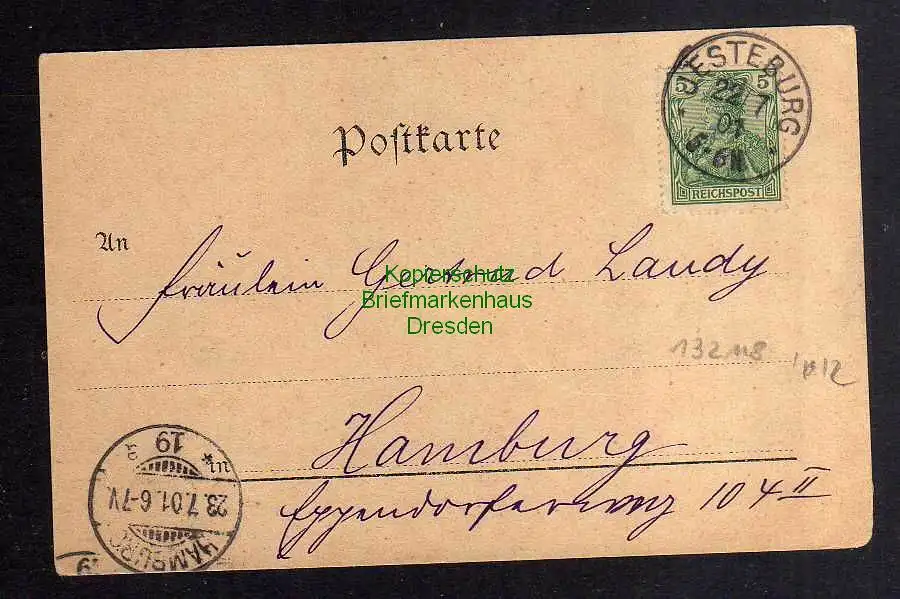 JESTEBURG
22 7
01
5 5
REICHSPOST
Postkarte
An
Fräulein Gertrud Landy
Kopierschutz
Briefmarkenhaus
Dresden
132
Hamburg
in
Eppendorferweg 104 II
19
23.7.01.6-7V.
HAMBURG
19